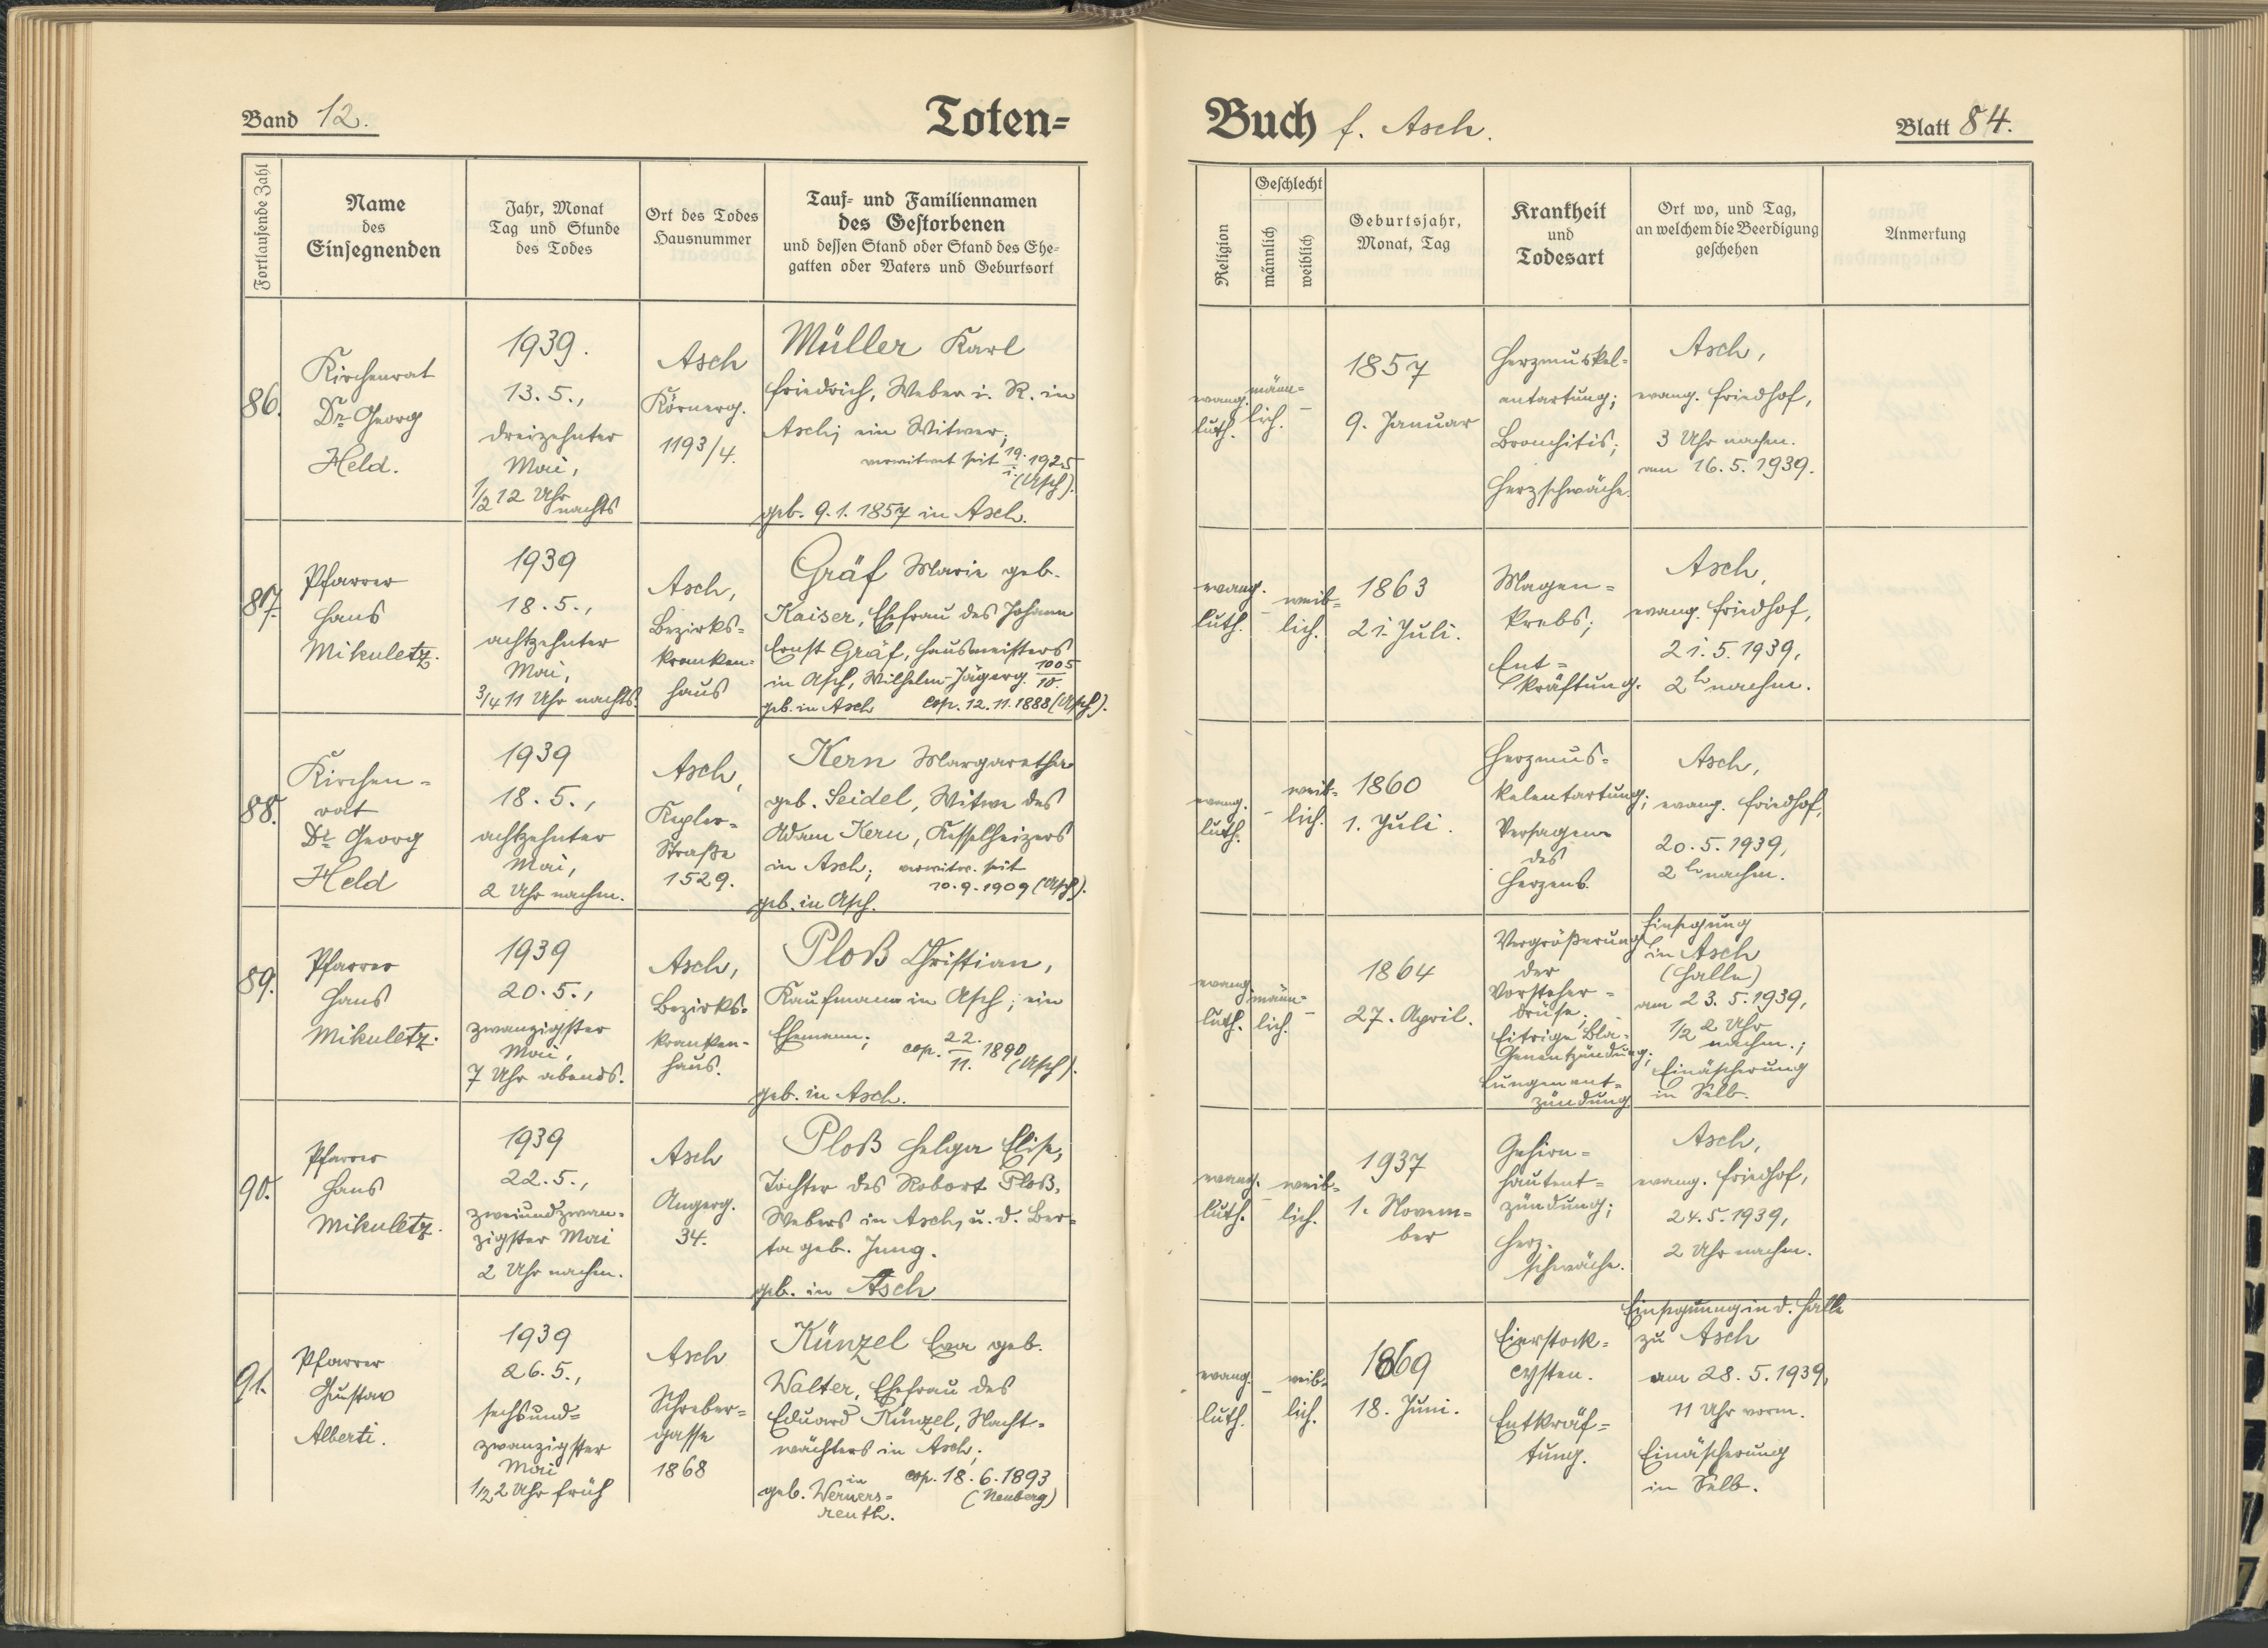 Band 12.
Toten-
Fortlaufende Zahl
Name
des
Einsegnenden
Jahr, Monat
Tag und Stunde
des Todes
Ort des Todes
Hausnummer
Tauf- und Familiennamen
des Gestorbenen
und dessen Stand oder Stand des Ehe-
gatten oder Vaters und Geburtsort
86.
Kirchenrat
Dr. Georg
Held.
1939.
13. 5.,
dreizehnter
Mai,
1/2 12 Uhr
nachts
Asch
Körnerg.
1193/4.
Müller Karl
Friedrich, Weber i. R. in
Asch; ein Witwer;
verwitwet seit 19./1. 1925
(Asch).
geb. 9. 1. 1857 in Asch.
87.
Pfarrer
Hans
Mikuletz.
1939
18. 5.,
achtzehnter
Mai,
3/4 11 Uhr nachts.
Asch,
Bezirks-
kranken-
haus
Gräf Marie geb.
Kaiser, Ehefrau des Johann
Ernst Gräf, Hausmeisters
in Asch, Wilhelm-Jägerg. 1005/10.
geb. in Asch cop. 12. 11. 1888 (Asch).
88.
Kirchen-
rat
Dr. Georg
Held
1939
18. 5.,
achtzehnter
Mai,
2 Uhr nachm.
Asch,
Kepler-
Straße
1529.
Kern Margaretha
geb. Seidel, Witwe des
Adam Kern, Kesselheizers
in Asch; verwitw. seit
10. 9. 1909 (Asch).
geb. in Asch.
89.
Pfarrer
Hans
Mikuletz.
1939
20. 5.,
zwanzigster
Mai,
7 Uhr abends.
Asch,
Bezirks-
kranken-
haus.
Ploß Christian,
Kaufmann in Asch; ein
Ehemann;
cop. 22./11. 1890
(Asch).
geb. in Asch.
90.
Pfarrer
Hans
Mikuletz.
1939
22. 5.,
zweiundzwan-
zigster Mai
2 Uhr nachm.
Asch
Angerg.
34.
Ploß Helga Elise,
Tochter des Robert Ploß,
Webers in Asch, u. d. Ber-
ta geb. Jung.
geb. in Asch
91.
Pfarrer
Gustav
Alberti.
1939
26. 5.,
sechsund-
zwanzigster
Mai
1/2 2 Uhr früh
Asch
Schreber-
gasse
1868
Künzel Eva geb.
Walter, Ehefrau des
Eduard Künzel, Nacht-
wächters in Asch;
cop. 18. 6. 1893
(Neuberg)
geb. in Werners-
reuth.
Buch f. Asch.
Blatt 84.
Religion
Geschlecht
männlich
weiblich
Geburtsjahr,
Monat, Tag
Krankheit
und
Todesart
Ort wo, und Tag,
an welchem die Beerdigung
geschehen
Anmerkung
evang.
luth.
männ-
lich.
–
1857
9. Januar
Herzmuskel-
entartung;
Bronchitis;
Herzschwäche.
Asch,
evang. Friedhof,
3 Uhr nachm.
am 16. 5. 1939.
evang.
luth.
–
weib-
lich.
1863
21. Juli.
Magen-
krebs;
Ent-
kräftung.
Asch,
evang. Friedhof,
21. 5. 1939,
2 h nachm.
evang.
luth.
–
weib-
lich.
1860
1. Juli.
Herzmus-
kelentartung;
Versagen
des
Herzens.
Asch,
evang. Friedhof,
20. 5. 1939,
2 h nachm.
evang.
luth.
männ-
lich.
–
1864
27. April.
Vergrößerung
der
Vorsteher-
drüse;
Eitrige Bla-
senentzündung;
Lungenent-
zündung
Einsegnung
in Asch
(Halle)
am 23. 5. 1939,
1/2 2 Uhr
nachm.;
Einäscherung
in Selb.
evang.
luth.
–
weib-
lich.
1937
1. Novem-
ber
Gehirn-
hautent-
zündung;
Herz-
schwäche.
Asch,
evang. Friedhof,
24. 5. 1939,
2 Uhr nachm.
evang.
luth.
–
weib-
lich.
1869
18. Juni.
Eierstock-
cysten.
Entkräf-
tung.
Einsegnung in d. Halle
zu Asch
am 28. 5. 1939,
11 Uhr vorm.
Einäscherung
in Selb.